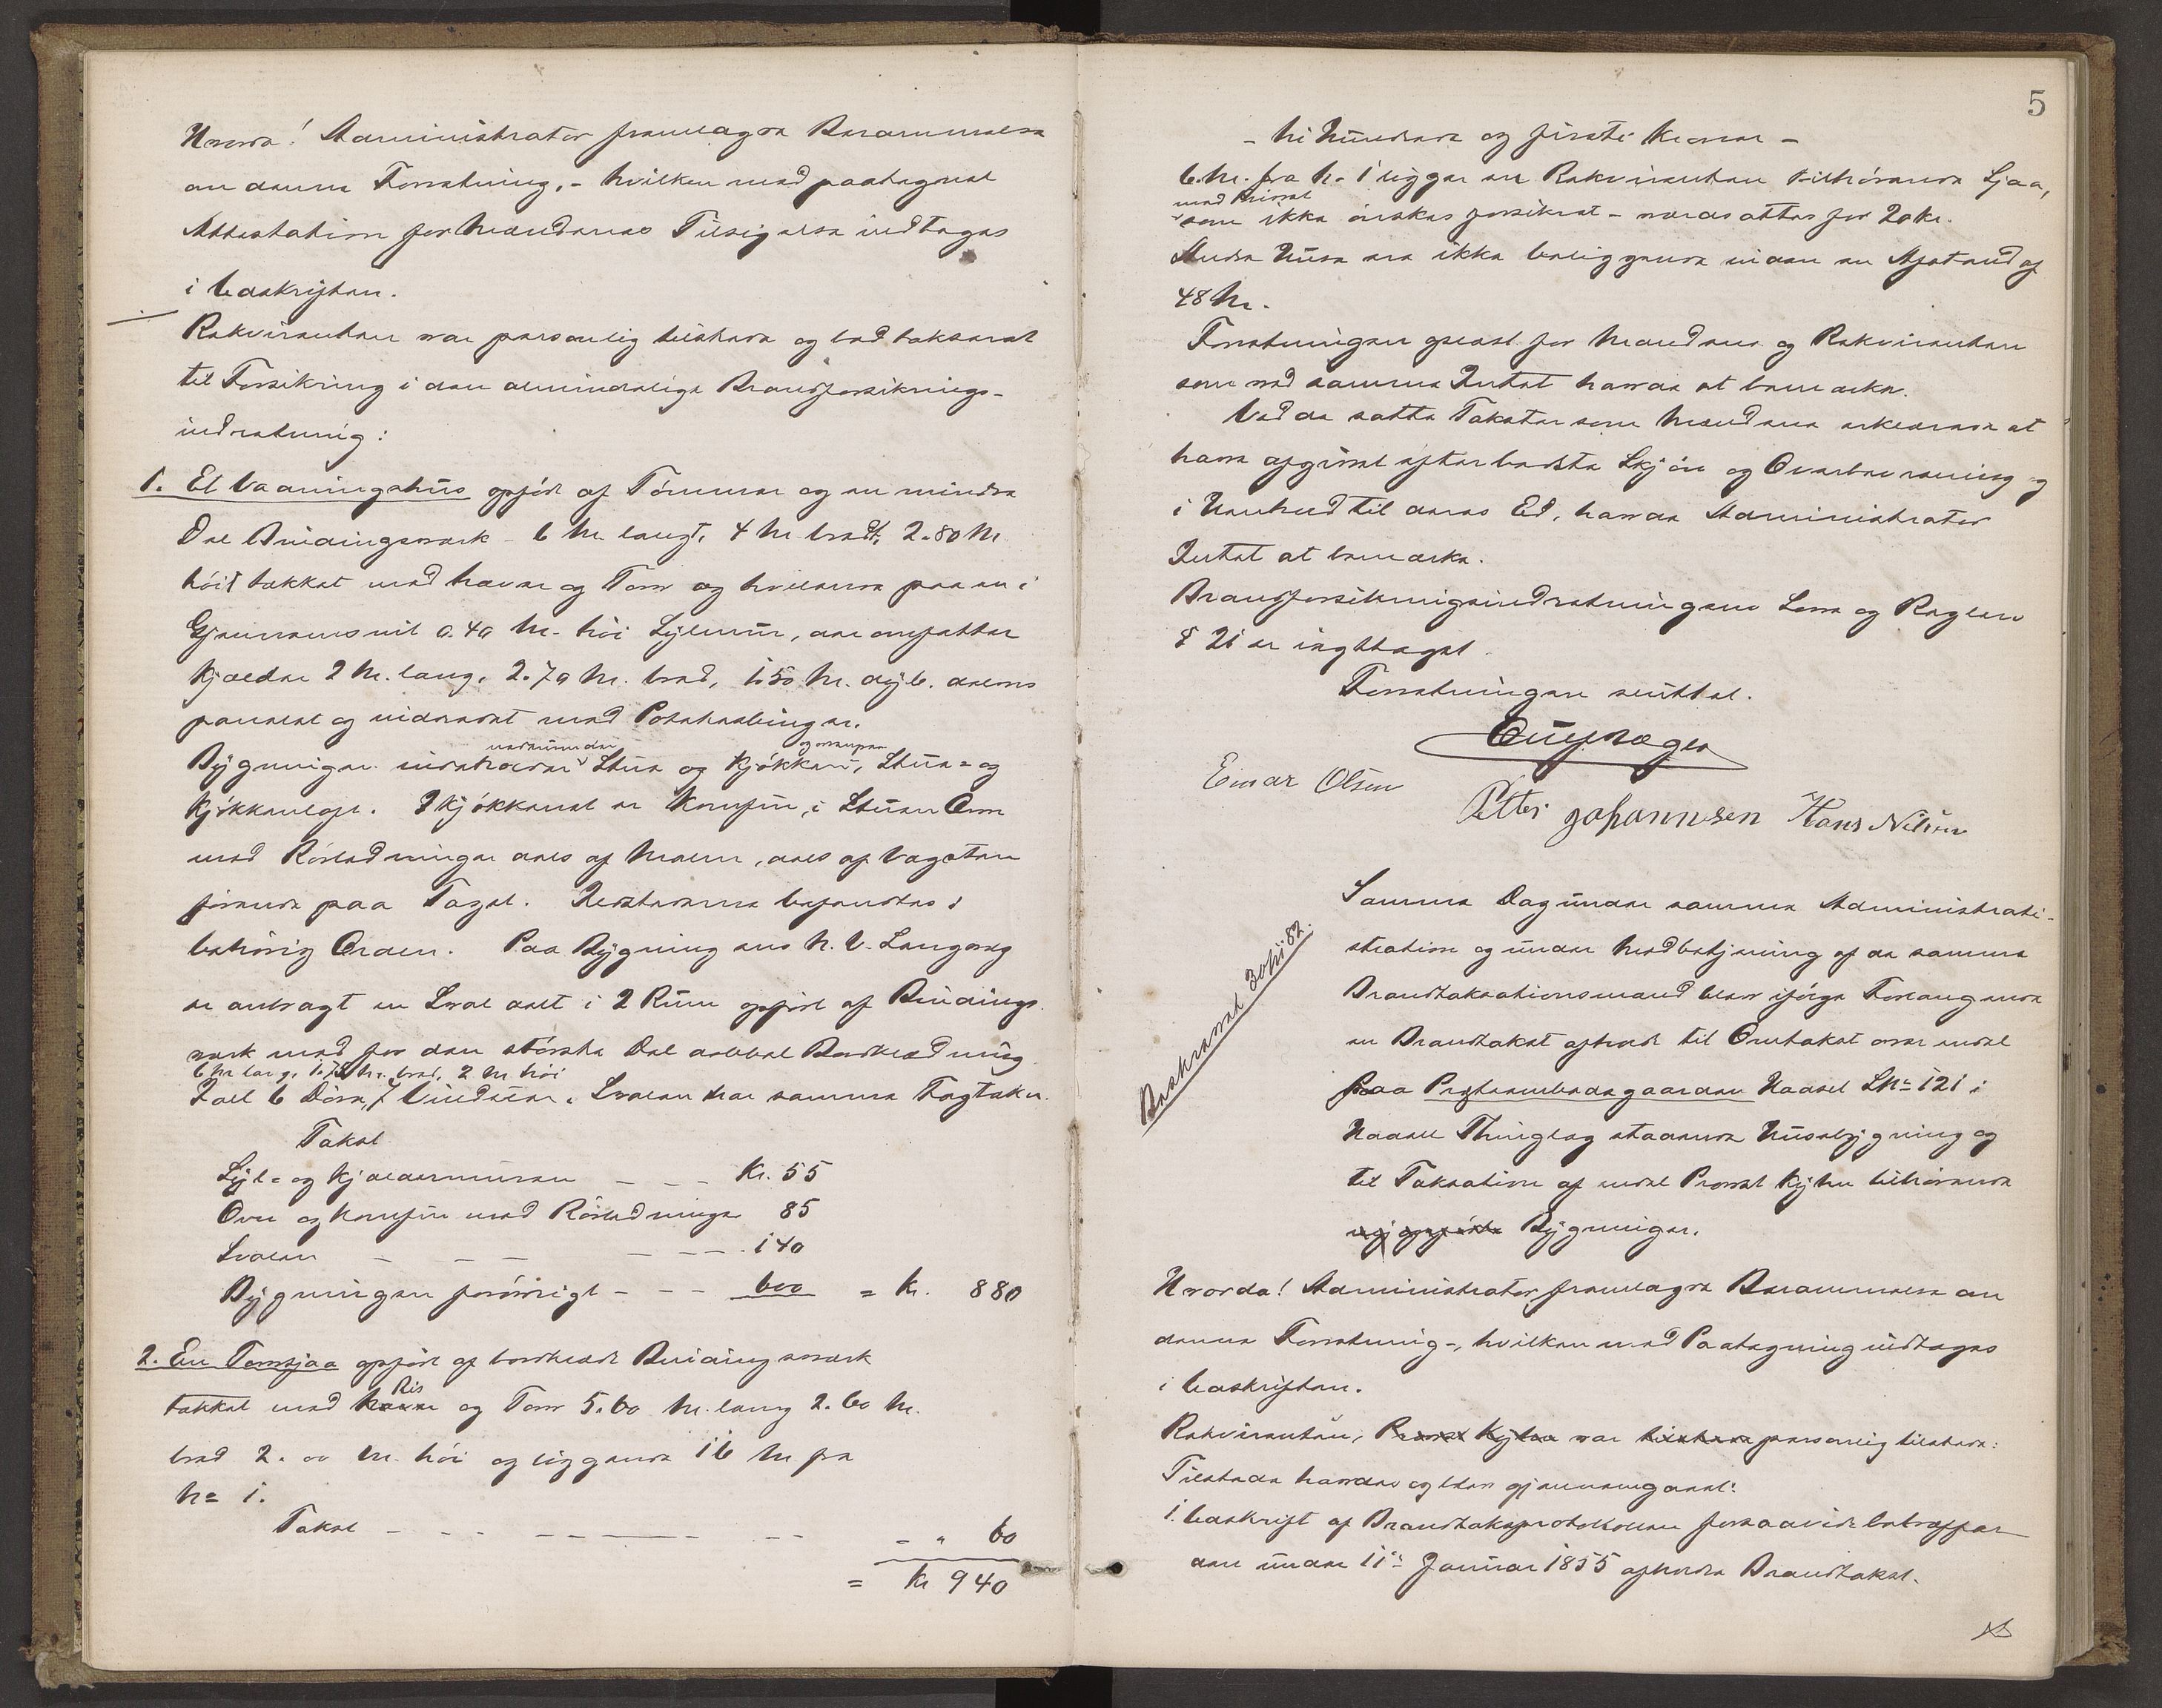 Hvorda! Administrator fremlagde Berammelse
om denne Forretning, - hvilken med paategnet
Attestation for Mændenes Tilsigelse indtages
i Beskriften.
Rekvirenten var personlig tilstede og bad takseret
til Forsikring i den almindelige Brandforsikrings-
indretning:
1. Et Vaaningshus opført af Tømmer og en mindre
Del Bindingsværk - 6 M. langt, 4 M. bredt, 2.80 M.
høit tækket med Næver og Torv og hvilende paa en i
Gjennemsnit 0.40 M. høi Sylmur, der omfatter
Kjælder 2 M. lang, 2.70 M. bred, 1.50 M. dyb. dels
panelet og indredet med
Bygningen indeholder nedenunder Stue og Kjøkken, og ovenpaa Stue- og
Kjøkkenloft. I Kjøkkenet er Komfur, i Stuen Ovn
med Rørledninger dels af Malm, dels af Tegelsten
førende paa Taget. Ildstederne befandtes i
behørig Orden. Paa Bygningens N. V. Langvæg
er anbragt en Sval delt i 2 Rum opført af Bindings-
værk med for den største Del dobbel Bordklædning
6 M. lang, 1.73 M. bred, 2 M. høi
Ialt 6 Døre, 7 Vinduer. Svalen har samme Tagtække.
Takst
Syl- og Kjældermuren - - - Kr. 55
Ovn og Komfur med Rørledninger 85
Svalen - - - - - - 140
Bygningen forøvrigt - - - 600 = Kr. 880
2. En Torvsjaa opført af bordklædt Bindingsværk
tækket med Næver Ris og Torv 5.60 M. lang 2.60 M.
bred 2.00 M. høi og liggende 16 M. fra
No 1.
Takst - - - - - - - - - " 60
= Kr 940
5
- ni Hundrede og firti Kroner -
6 M. fra No 1 ligger en Rekvirenten tilhørende Sjaa,
med
som ikke ønskes forsikret - værdsættes for 20 Kr.
Andre Huse ere ikke beliggende inden en Afstand af
48 M.
Forretningen oplæst for Mændene og Rekvirenten
som ved samme Intet havde at bemærke.
Ved de satte Takster som Mændene erklærede at
have afgivet efter bedste Skjøn og Overbevisning og
i Henhold til deres Ed, havde Administrator
Intet at bemærke.
Brandforsikringsindretningens Love og Reglers
§ 21 er iagttaget.
Forretningen sluttet.
Einar Olsen
Petter Johannesen Hans Nilsen
Samme Dag under samme Administrati-
stration og under Medbetjening af de samme
Brandtakstationsmænd blev ifølge Forlangende
en Brandtakst afholdt til Omtakst over endel
paa Prestenbolsgaarden Hadsel LNo 121 i
Hadsel Thinglag staaende Husebygning og
til Taksation af endel Provst Kyhn tilhørende
ny opførte Bygninger.
Beskrevet 30/11 82.
Hvorda! Administrator fremlagde Berammelse om
denne Forretning -, hvilken med Paategning indtages
i Beskriften.
Rekvirenten, Provst Kyhn var tilstede personlig tilstede:
Tilstede havdes og blev gjennemgaaet:
1. Beskrift af Brandtakstprotokollen forsaavidt betræffer
den under 11te Januar 1855 afholdte Brandtakst.